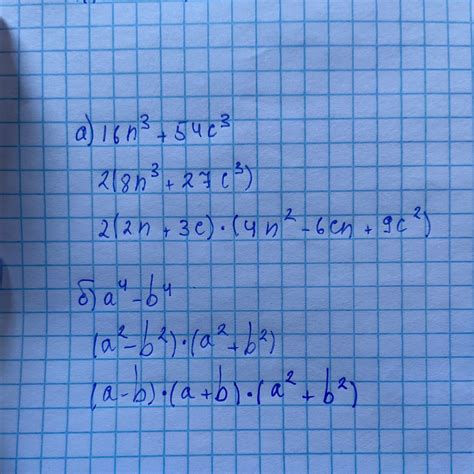 а) 16n³ + 54c³
2(8n³ + 27c³)
2(2n + 3c) · (4n² - 6cn + 9c²)
б) a⁴ - b⁴
(a² - b²) · (a² + b²)
(a - b) · (a + b) · (a² + b²)